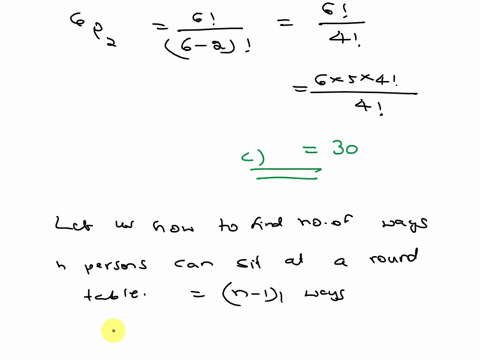 6P2 = 6!/(6-2)! = 6!/4!
= 6×5×4!/4!
c) = 30
Let us now to find no. of ways
n persons can sit at a round
table. = (n-1)! ways